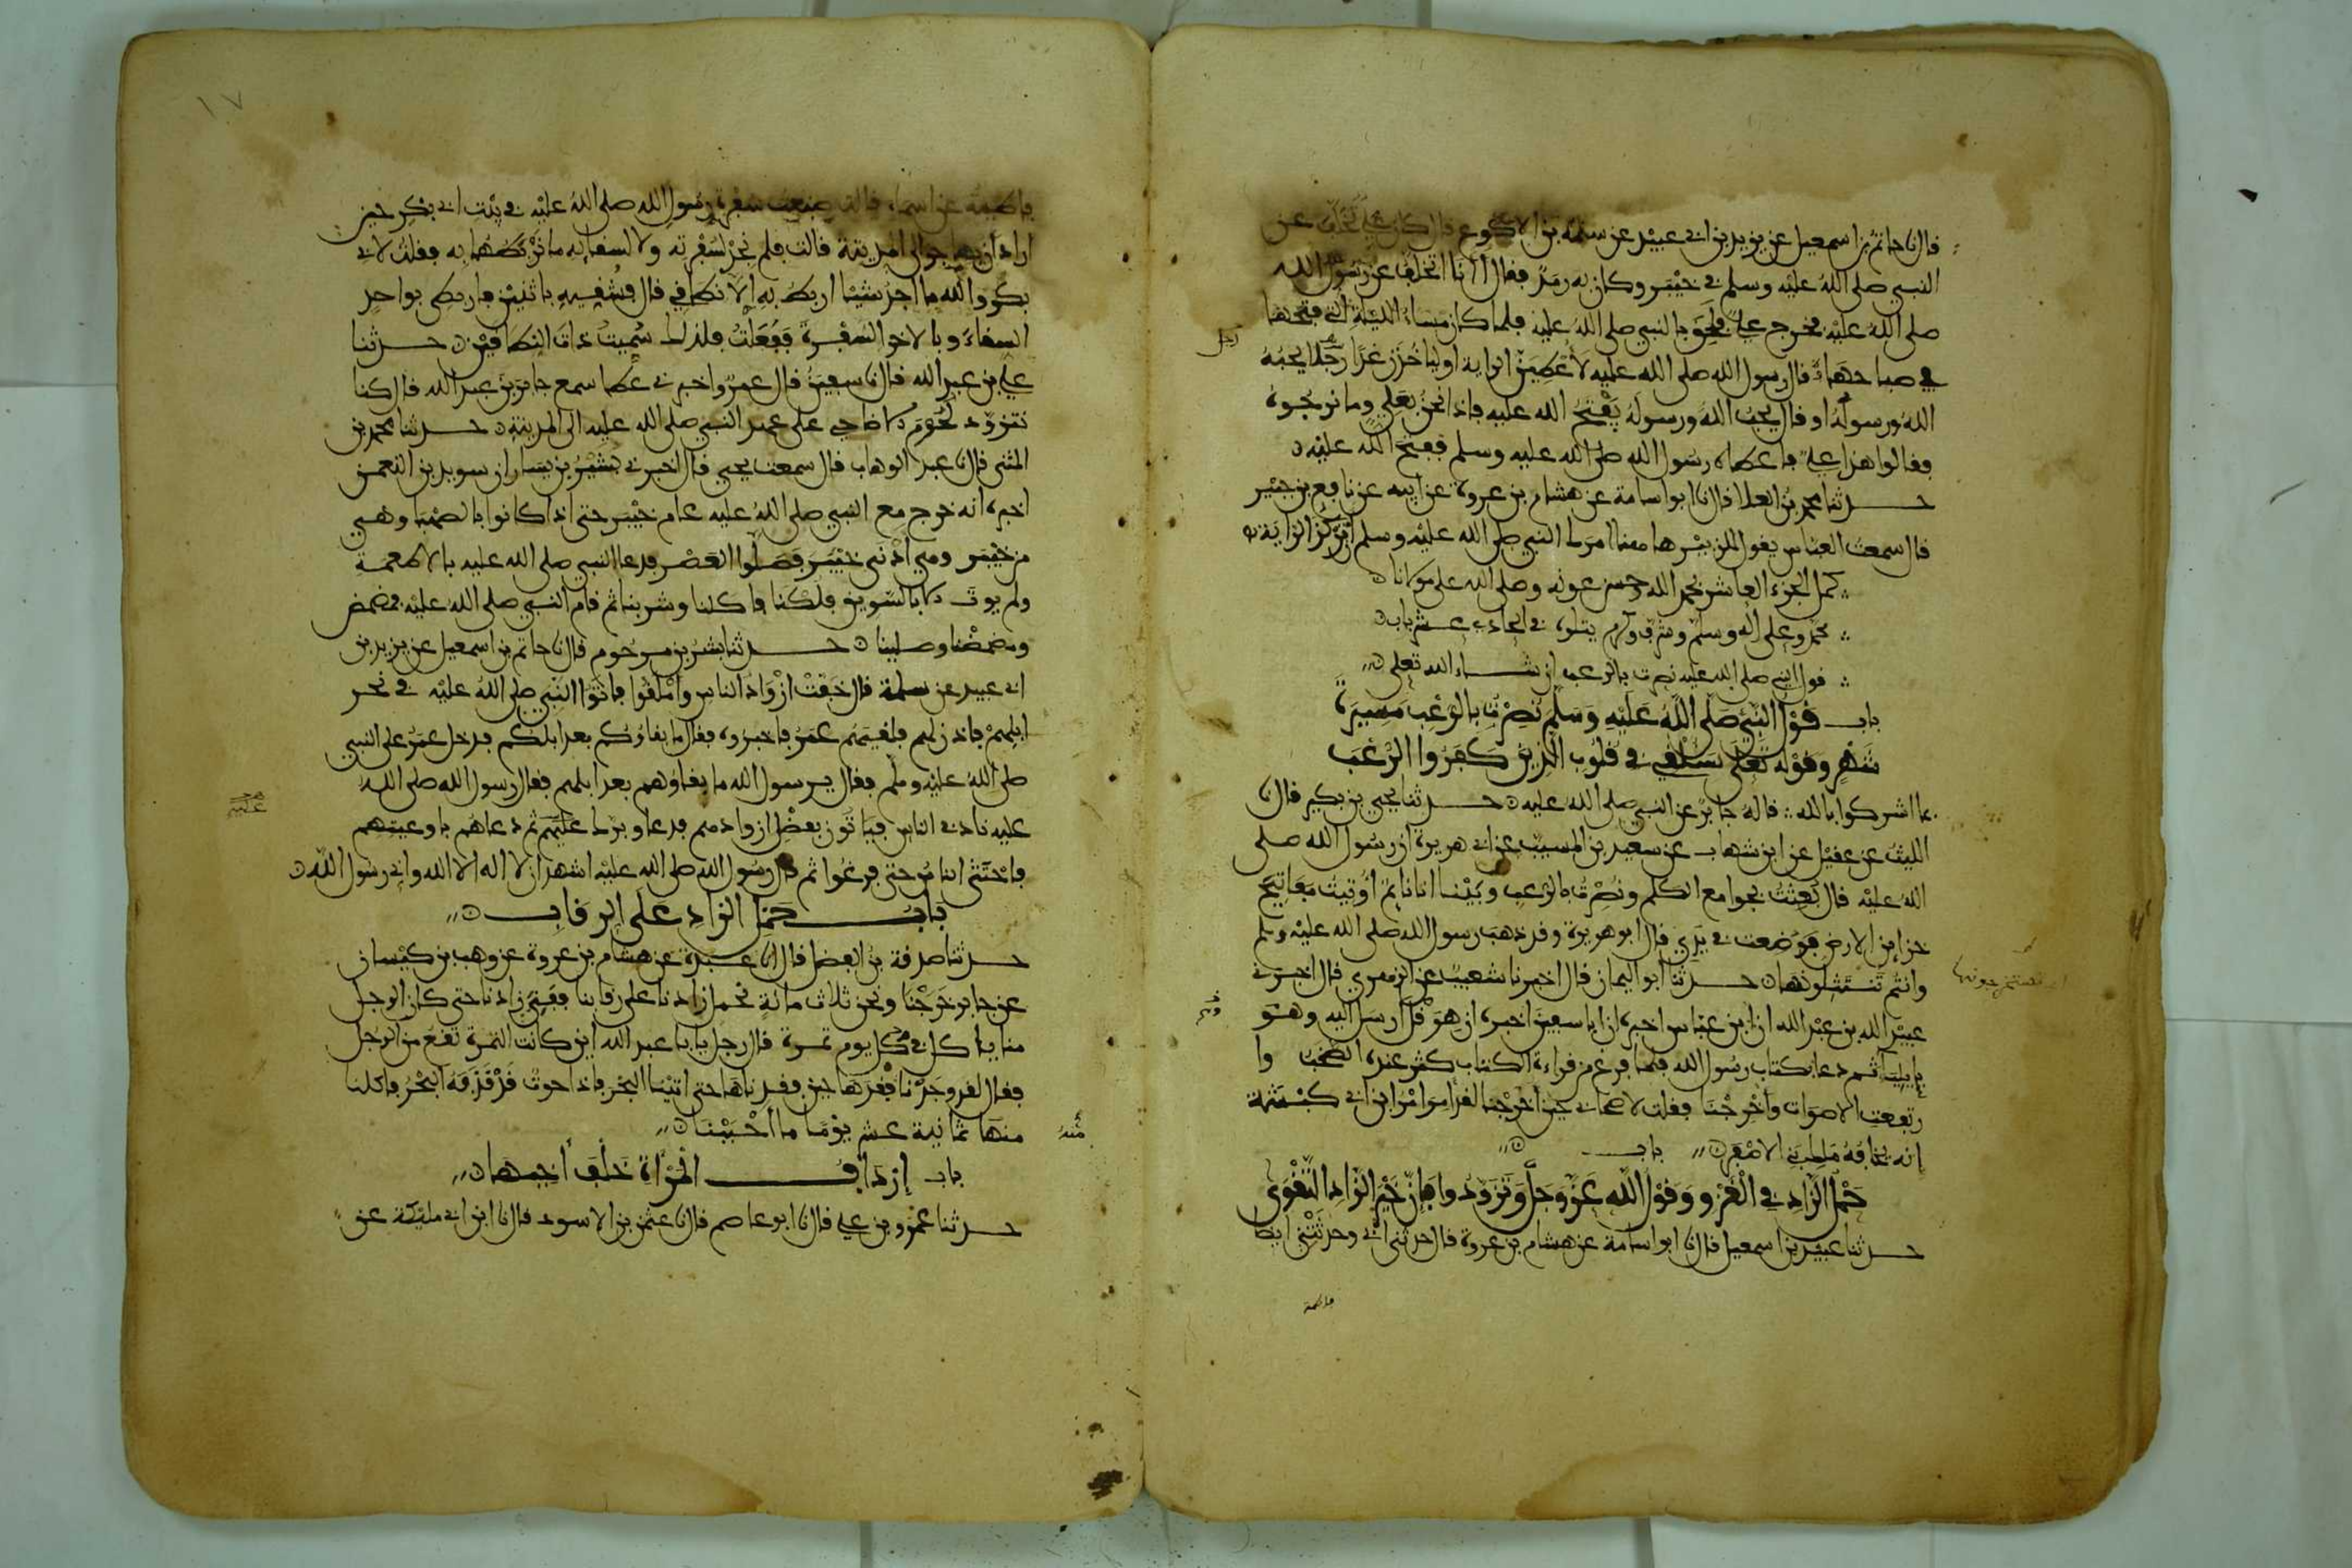 قال نا حاتم بن اسمعيل عن يزيد بن ابي عبيد عن سلمة بن الاكوع قال كان علي تخلف عن
النبي صلى الله عليه وسلم في خيبر وكان به رمد فقال أنا أتخلف عن رسول الله
صلى الله عليه فخرج علي فلحق بالنبي صلى الله عليه فلما كان مساء الليلة التي فتحها
في صباحها قال رسول الله صلى الله عليه لأعطين الراية او لياخذن غدا رجلا يحبه
الله ورسوله او قال يحب الله ورسوله يفتح الله عليه فاذا نحن بعلي وما نرجوه
فقالوا هذا علي فاعطاه رسول الله صلى الله عليه وسلم ففتح الله عليه
حدثنا محمد بن العلا قال نا ابو اسامة عن هشام بن عروة عن ابيه عن نافع بن جبير
قال سمعت العباس يقول للزبير هاهنا امرك النبي صلى الله عليه وسلم ان تركز الراية
كمل الجزء العاشر بحمد الله وحسن عونه وصلى الله على مولانا
محمد وعلى اله وسلم وشرف وكرم يتلوه في الحادي عشر باب
قول النبي صلى الله عليه نصرت بالرعب ان شاء الله تعلى
باب قول النبي صلى الله عليه وسلم نصرت بالرعب مسيرة
شهر وقوله تعلى سنلقي في قلوب الذين كفروا الرعب
بما اشركوا بالله قاله جابر عن النبي صلى الله عليه حدثنا يحيى بن بكير قال نا
الليث عن عقيل عن ابن شهاب عن سعيد بن المسيب عن ابي هريرة ان رسول الله صلى
الله عليه قال بعثت بجوامع الكلم ونصرت بالرعب وبينا انا نائم أوتيت مفاتيح
خزاين الارض فوضعت في يدي قال ابو هريرة وقد ذهب رسول الله صلى الله عليه وسلم
وانتم تنتثلونها حدثنا ابو اليمان قال اخبرنا شعيب عن الزهري قال اخبرني
عبيد الله بن عبد الله ان ابن عباس اخبره ان ابا سفين اخبره ان هرقل ارسل اليه وهو
بايلياء ثم دعا بكتاب رسول الله فلما فرغ من قراءة الكتاب كثر عنده الصخب وا
رتفعت الاصوات وأخرجنا فقلت لاصحابي حين أخرجنا لقد امر امر ابن ابي كبشة
إنه يخافه ملك بني الاصفر باب
حمل الزاد في الغزو وقول الله عز وجل وتزودوا فإن خير الزاد التقوى
حدثنا عبيد بن اسمعيل قال نا ابو اسامة عن هشام بن عروة قال حدثني ابي وحدثتني ايضا
فاطمة
١٧
فاطمة عن اسماء قالت صنعت سفرة رسول الله صلى الله عليه في بيت ابي بكر حين
اراد ان يهاجر الى المدينة قالت فلم نجد لسفرته ولا لسقايه ما نربطهما به فقلت لابي
بكر والله ما اجد شيئا اربط به إلا نطاقي قال فشقيه باثنين فاربطي بواحد
السقاء وبالاخر السفرة ففعلت فلذلك سميت ذات النطاقين حدثنا
علي بن عبد الله قال نا سفين قال عمرو اخبرني عطا سمع جابر بن عبد الله قال كنا
نتزود لحوم الاضاحي على عهد النبي صلى الله عليه الى المدينة حدثنا محمد بن
المثنى قال نا عبد الوهاب قال سمعت يحيى قال اخبرني بشير بن يسار ان سويد بن النعمن
اخبره انه خرج مع النبي صلى الله عليه عام خيبر حتى اذا كانوا بالصهبا وهي
من خيبر وهي أدنى خيبر فصلوا العصر فدعا النبي صلى الله عليه بالاطعمة
ولم يوت الا بالسويق فلكنا فاكلنا وشربنا ثم قام النبي صلى الله عليه فمضمض
ومضمضنا وصلينا حدثنا بشر بن مرحوم قال نا حاتم بن اسمعيل عن يزيد بن
ابي عبيد عن سلمة قال خفت ازواد الناس وأملقوا فاتوا النبي صلى الله عليه في نحر
ابلهم فاذن لهم فلقيهم عمر فاخبروه فقال ما بقاؤكم بعد ابلكم فدخل عمر على النبي
صلى الله عليه وسلم فقال يرسول الله ما بقاؤهم بعد ابلهم فقال رسول الله صلى الله
عليه ناد في الناس فياتون بفضل ازوادهم فدعا وبرك عليهم ثم دعاهم باوعيتهم
فاحتثى الناس حتى فرغوا ثم قال رسول الله صلى الله عليه اشهد ان لا اله الا الله واني رسول الله
باب حمل الزاد على الرقاب
حدثنا صدقة بن الفضل قال انا عبدة عن هشام بن عروة عن وهب بن كيسان
عن جابر خرجنا ونحن ثلاث مائة نحمل زادنا على رقابنا ففني زادنا حتى كان الرجل
منا ياكل في كل يوم تمرة قال رجل يا با عبد الله اين كانت التمرة تقع من الرجل
فقال لقد وجدنا فقدها حين فقدناها حتى اتينا البحر فاذا حوت قد قذفه البحر فاكلنا
منها ثمانية عشر يوما ما أحببنا
باب إرداف المرأة خلف أخيها
حدثنا عمرو بن علي قال نا ابو عاصم قال نا عثمن بن الاسود قال نا ابن ابي مليكة عن